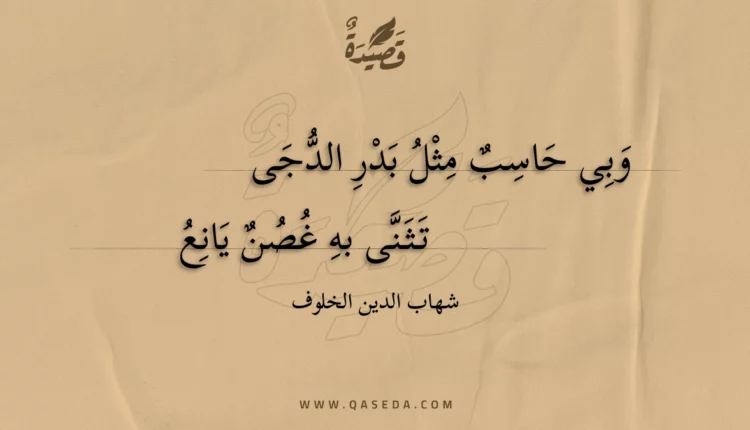 قَصِيْدَةٌ
وَبِي حَاسِبٌ مِثْلُ بَدْرِ الدُّجَى
تَثَنَّى بهِ غُصُنٌ يَانِعُ
شهاب الدين الخلوف
WWW.QASEDA.COM